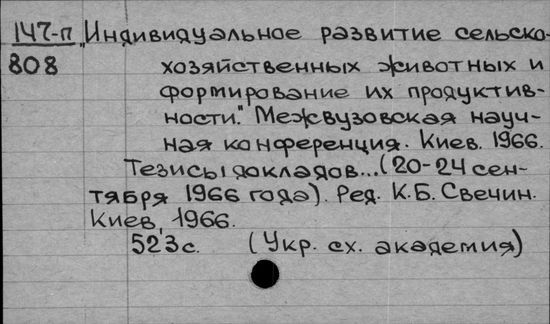 147-п „Индивидуальное развитие сельско-
808 хозяйственных животных и
формирование их продуктив-
ности." Межвузовская науч-
ная конференция. Киев. 1966.
Тезисы докладов...(20-24 сен-
тября 1966 года). Ред. К.Б. Свечин.
Киев, 1966.
523с. (Укр. сх. академия)